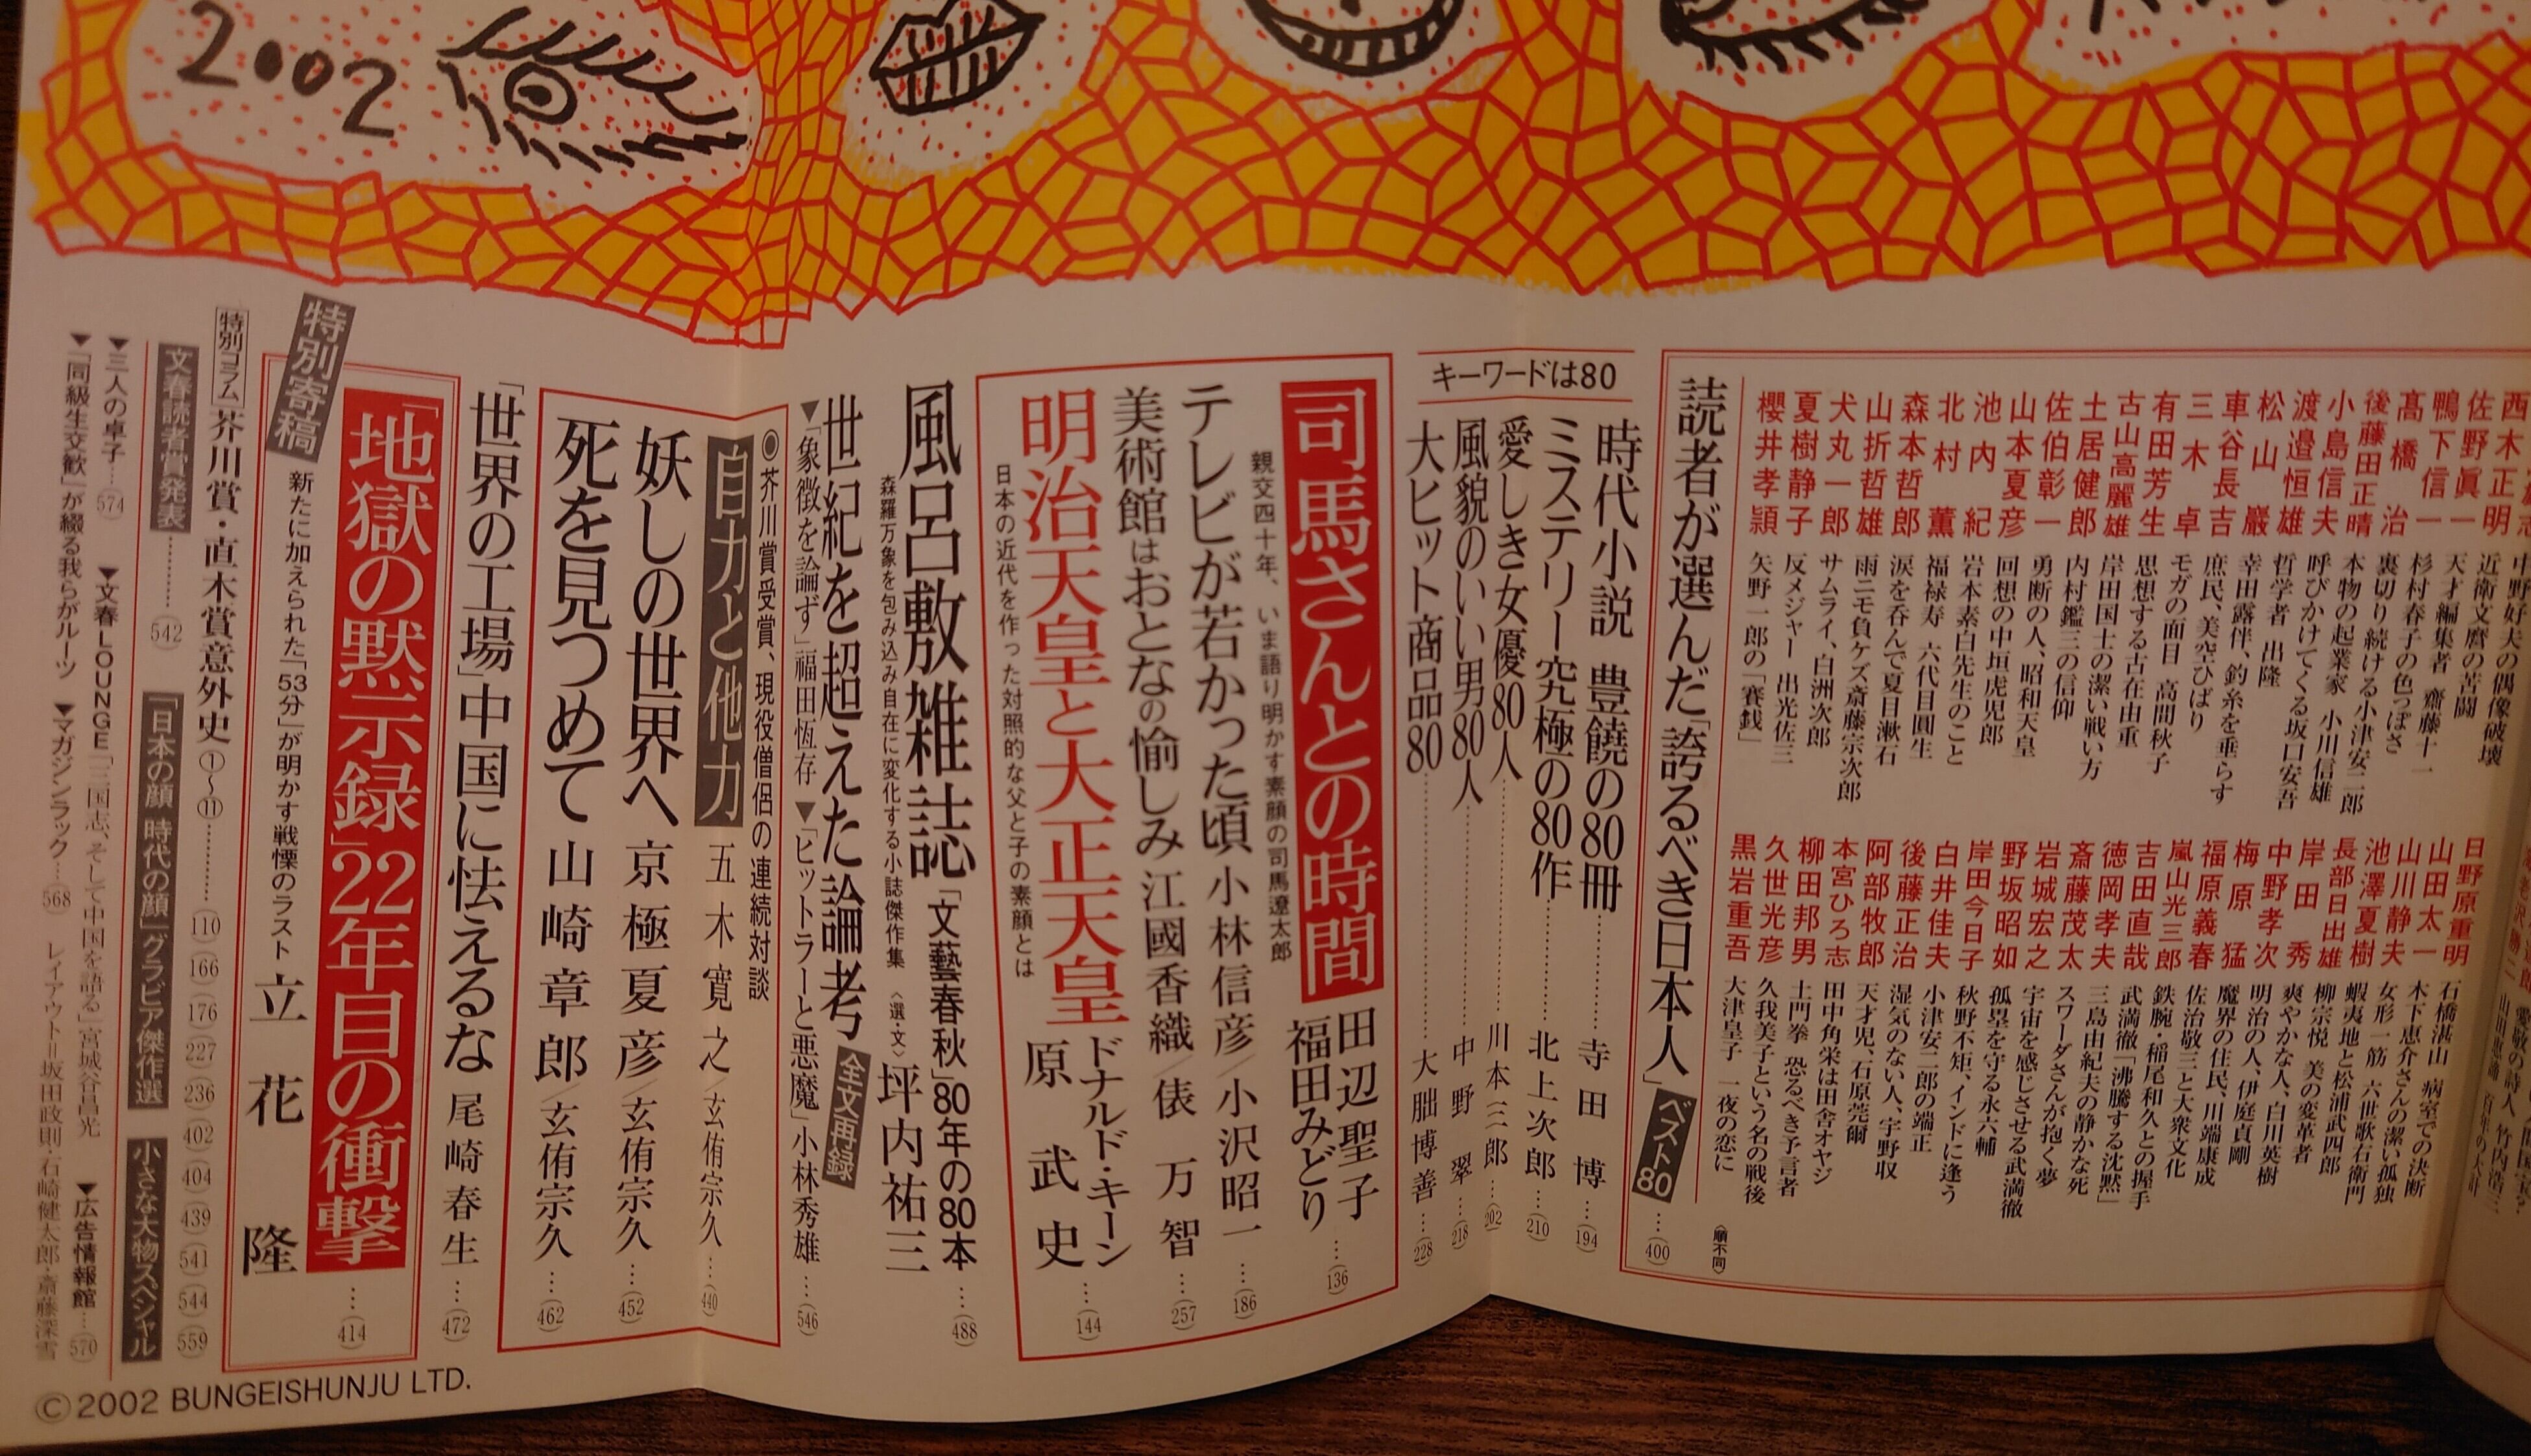 2002
西木正明
中野好夫の偶像破壊
佐野眞一
近衛文麿の苦闘
鴨下信一
天才編集者 齋藤十一
髙橋治
杉村春子の色っぽさ
後藤田正晴
裏切り続ける小津安二郎
小島信夫
本物の起業家 小川信雄
渡邉恒雄
呼びかけてくる坂口安吾
松山巖
哲学者 出隆
車谷長吉
幸田露伴、釣糸を垂らす
三木卓
庶民、美空ひばり
有田芳生
モガの面目 高間秋子
古山高麗雄
思想する古在由重
土居健郎
岸田国士の潔い戦い方
佐伯彰一
内村鑑三の信仰
山本夏彦
勇断の人、昭和天皇
池内紀
回想の中垣虎児郎
北村薫
岩本素白先生のこと
森本哲郎
福禄寿 六代目圓生
山折哲雄
涙を呑んで夏目漱石
犬丸一郎
雨ニモ負ケズ斎藤宗次郎
夏樹静子
サムライ、白洲次郎
櫻井孝頴
反メジャー 出光佐三
矢野一郎の「賽銭」
日野原重明
石橋湛山 病室での決断
山田太一
木下恵介さんの潔い孤独
山川静夫
女形一筋 六世歌右衛門
池澤夏樹
蝦夷地と松浦武四郎
長部日出雄
柳宗悦 美の変革者
岸田秀
爽やかな人、白川英樹
中野孝次
明治の人、伊庭貞剛
梅原猛
魔界の住民、川端康成
福原義春
佐治敬三と大衆文化
嵐山光三郎
鉄腕、稲尾和久との握手
吉田直哉
武満徹「沸騰する沈黙」
徳岡孝夫
三島由紀夫の静かな死
斎藤茂太
スワーダさんが抱く夢
岩城宏之
宇宙を感じさせる武満徹
野坂昭如
孤塁を守る永六輔
岸田今日子
秋野不矩、インドに逢う
白井佳夫
小津安二郎の端正
後藤正治
湿気のない人、宇野収
阿部牧郎
天才児、石原莞爾
本宮ひろ志
田中角栄は田舎オヤジ
柳田邦男
土門拳 恐るべき予言者
久世光彦
久我美子という名の戦後
黒岩重吾
大津皇子 一夜の恋に
(順不同)
読者が選んだ「誇るべき日本人」ベスト80…(400)
キーワードは80
時代小説 豊饒の80冊…………寺田 博…(194)
ミステリー究極の80作…………北上次郎…(210)
愛しき女優80人…………川本三郎…(202)
風貌のいい男80人…………中野 翠…(218)
大ヒット商品80…………大朏博善…(228)
司馬さんとの時間
親交四十年、いま語り明かす素顔の司馬遼太郎
田辺聖子
福田みどり…(136)
テレビが若かった頃 小林信彦/小沢昭一…(186)
美術館はおとなの愉しみ 江國香織/俵 万智…(257)
明治天皇と大正天皇
日本の近代を作った対照的な父と子の素顔とは
ドナルド・キーン
原 武史…(144)
風呂敷雑誌「文藝春秋」80年の80本…(488)
森羅万象を包み込み自在に変化する小誌傑作集 〈選・文〉坪内祐三
世紀を超えた論考 全文再録
▼「象徴を論ず」福田恆存 ▼「ヒットラーと悪魔」小林秀雄…(546)
◉芥川賞受賞、現役僧侶の連続対談
自力と他力 五木寛之/玄侑宗久…(440)
妖しの世界へ 京極夏彦/玄侑宗久…(452)
死を見つめて 山崎章郎/玄侑宗久…(462)
「世界の工場」中国に怯えるな 尾崎春生…(472)
特別寄稿
「地獄の黙示録」22年目の衝撃…(414)
新たに加えられた「53分」が明かす戦慄のラスト 立花 隆
特別コラム 芥川賞・直木賞意外史①〜⑪…………(110)(166)(176)(227)(236)(402)(404)(439)(541)(544)(559)
文春読者賞発表…………(542) 「日本の顔 時代の顔」グラビア傑作選 小さな大物スペシャル
▼三人の卓子…(574) ▼文春LOUNGE「三国志、そして中国を語る」宮城谷昌光 ▼広告情報館…(570)
▼「同級生交歓」が綴る我らがルーツ ▼マガジンラック…(568) レイアウト=坂田政則・石崎健太郎・斎藤深雪
©2002 BUNGEISHUNJU LTD.